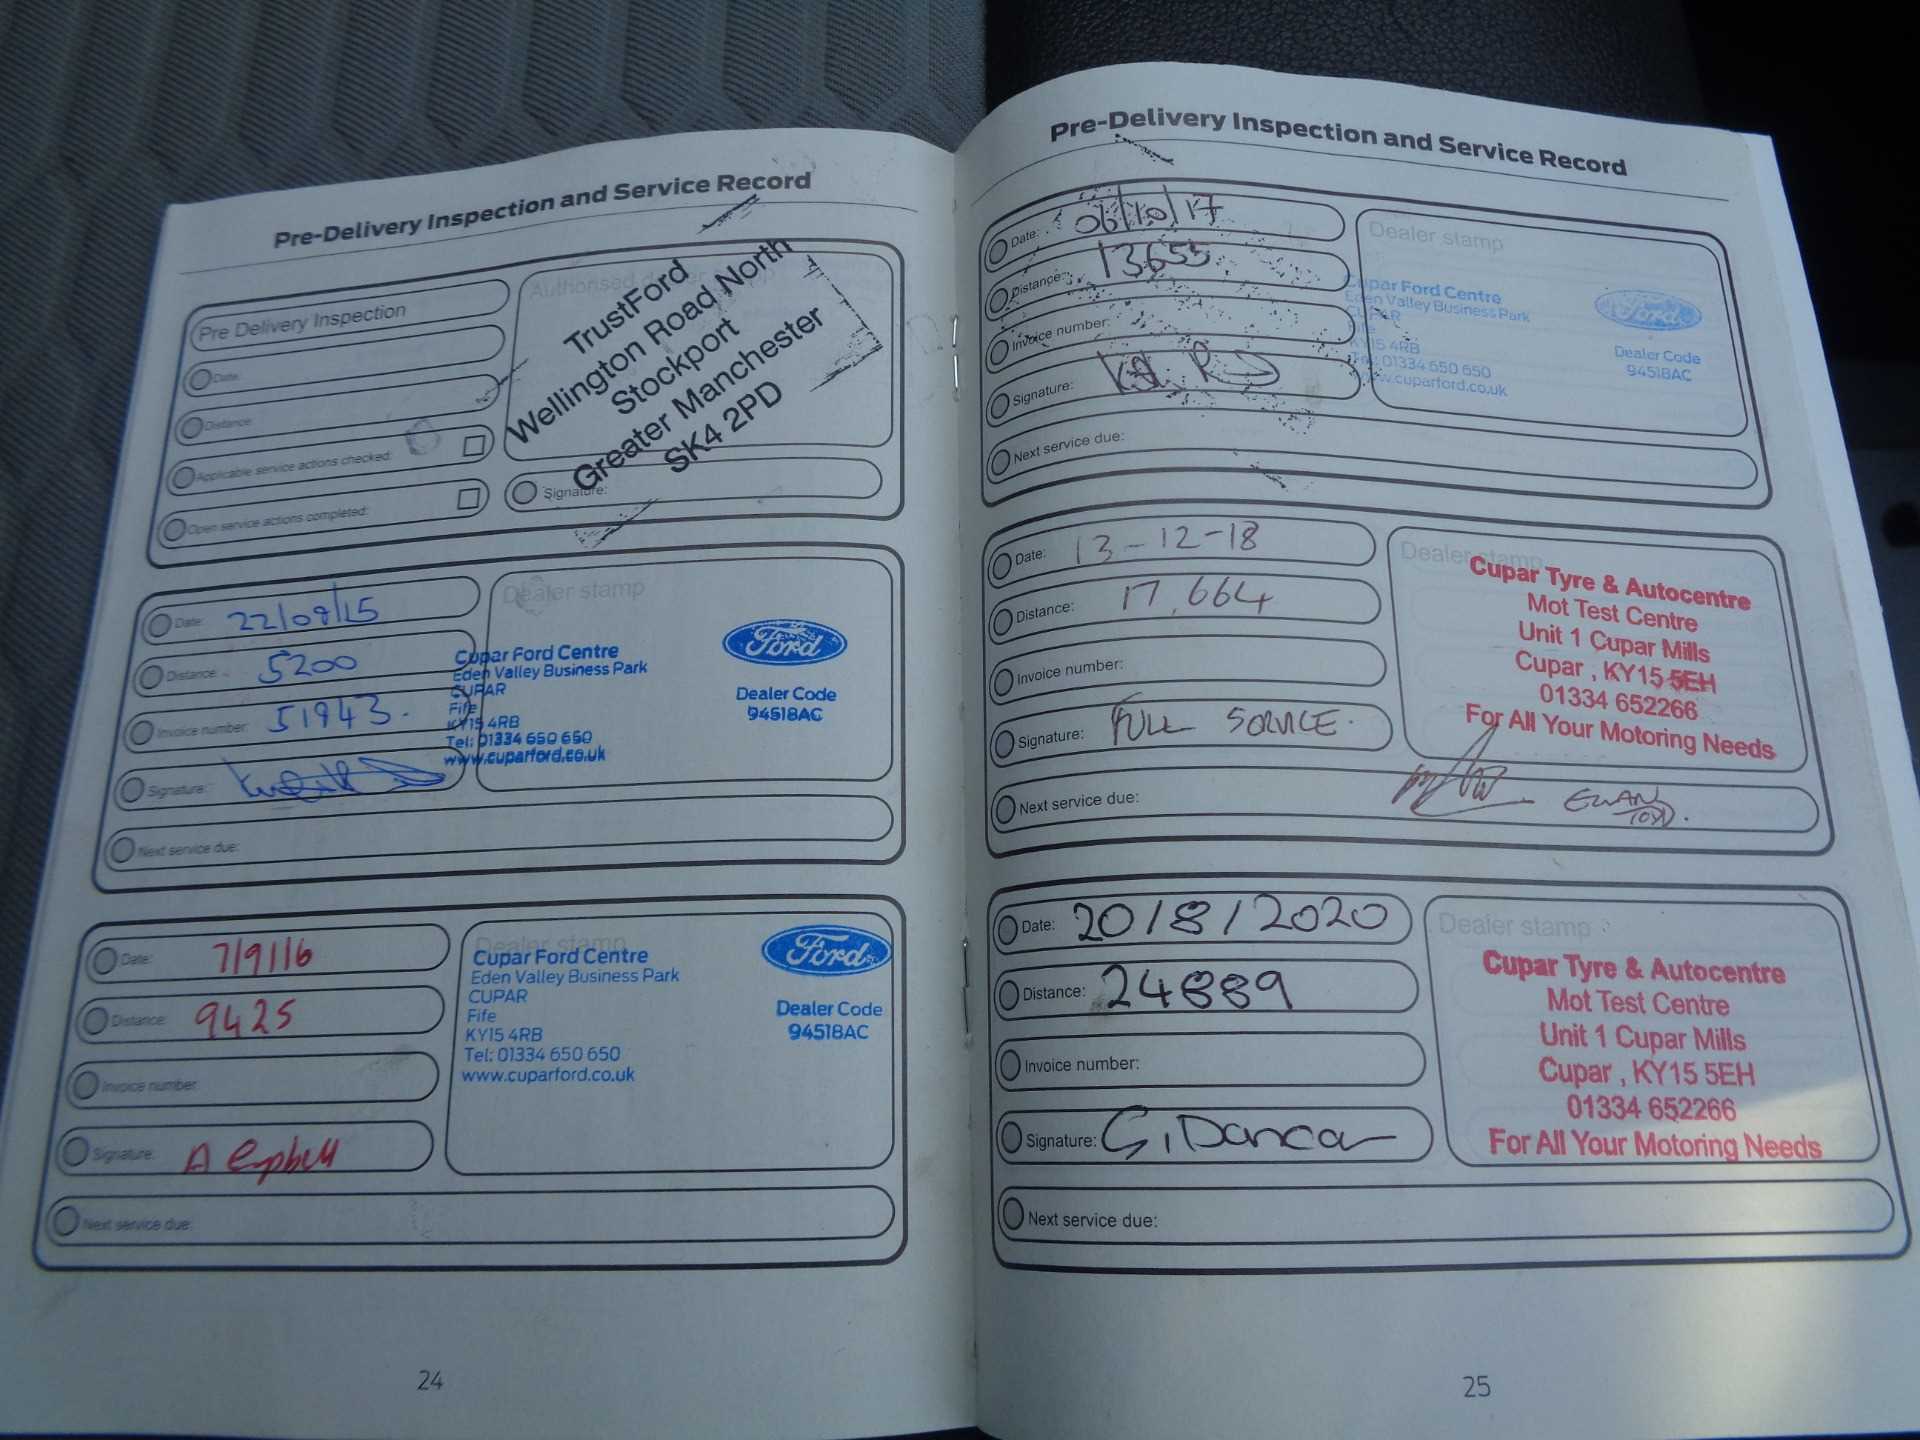 Pre-Delivery Inspection and Service Record
Pre Delivery Inspection
Date:
Distance:
Applicable service actions checked:
Open service actions completed:
Authorised
TrustFord
Wellington Road North
Stockport
Greater Manchester
SK4 2PD
Signature:
Date: 22/09/15
Distance: 5200
Invoice number: 51943.
Signature:
Next service due:
Dealer stamp
Cupar Ford Centre
Eden Valley Business Park
CUPAR
Fife
KY15 4RB
Tel: 01334 650 650
www.cuparford.co.uk
Ford
Dealer Code
94518AC
Date: 7/9/16
Distance: 9425
Invoice number:
Signature: A Campbell
Next service due:
Dealer stamp
Cupar Ford Centre
Eden Valley Business Park
CUPAR
Fife
KY15 4RB
Tel: 01334 650 650
www.cuparford.co.uk
Ford
Dealer Code
94518AC
24
Pre-Delivery Inspection and Service Record
Date: 06/10/17
Distance: 13655
Invoice number:
Signature:
Next service due:
Dealer stamp
Cupar Ford Centre
Eden Valley Business Park
CUPAR
Fife
KY15 4RB
Tel: 01334 650 650
www.cuparford.co.uk
Ford
Dealer Code
94518AC
Date: 13-12-18
Distance: 17,664
Invoice number:
Signature: FULL SERVICE.
Next service due: EWAN TODD.
Dealer stamp
Cupar Tyre & Autocentre
Mot Test Centre
Unit 1 Cupar Mills
Cupar , KY15 5EH
01334 652266
For All Your Motoring Needs
Date: 20/8/2020
Distance: 24889
Invoice number:
Signature: G. Duncan
Next service due:
Dealer stamp
Cupar Tyre & Autocentre
Mot Test Centre
Unit 1 Cupar Mills
Cupar , KY15 5EH
01334 652266
For All Your Motoring Needs
25